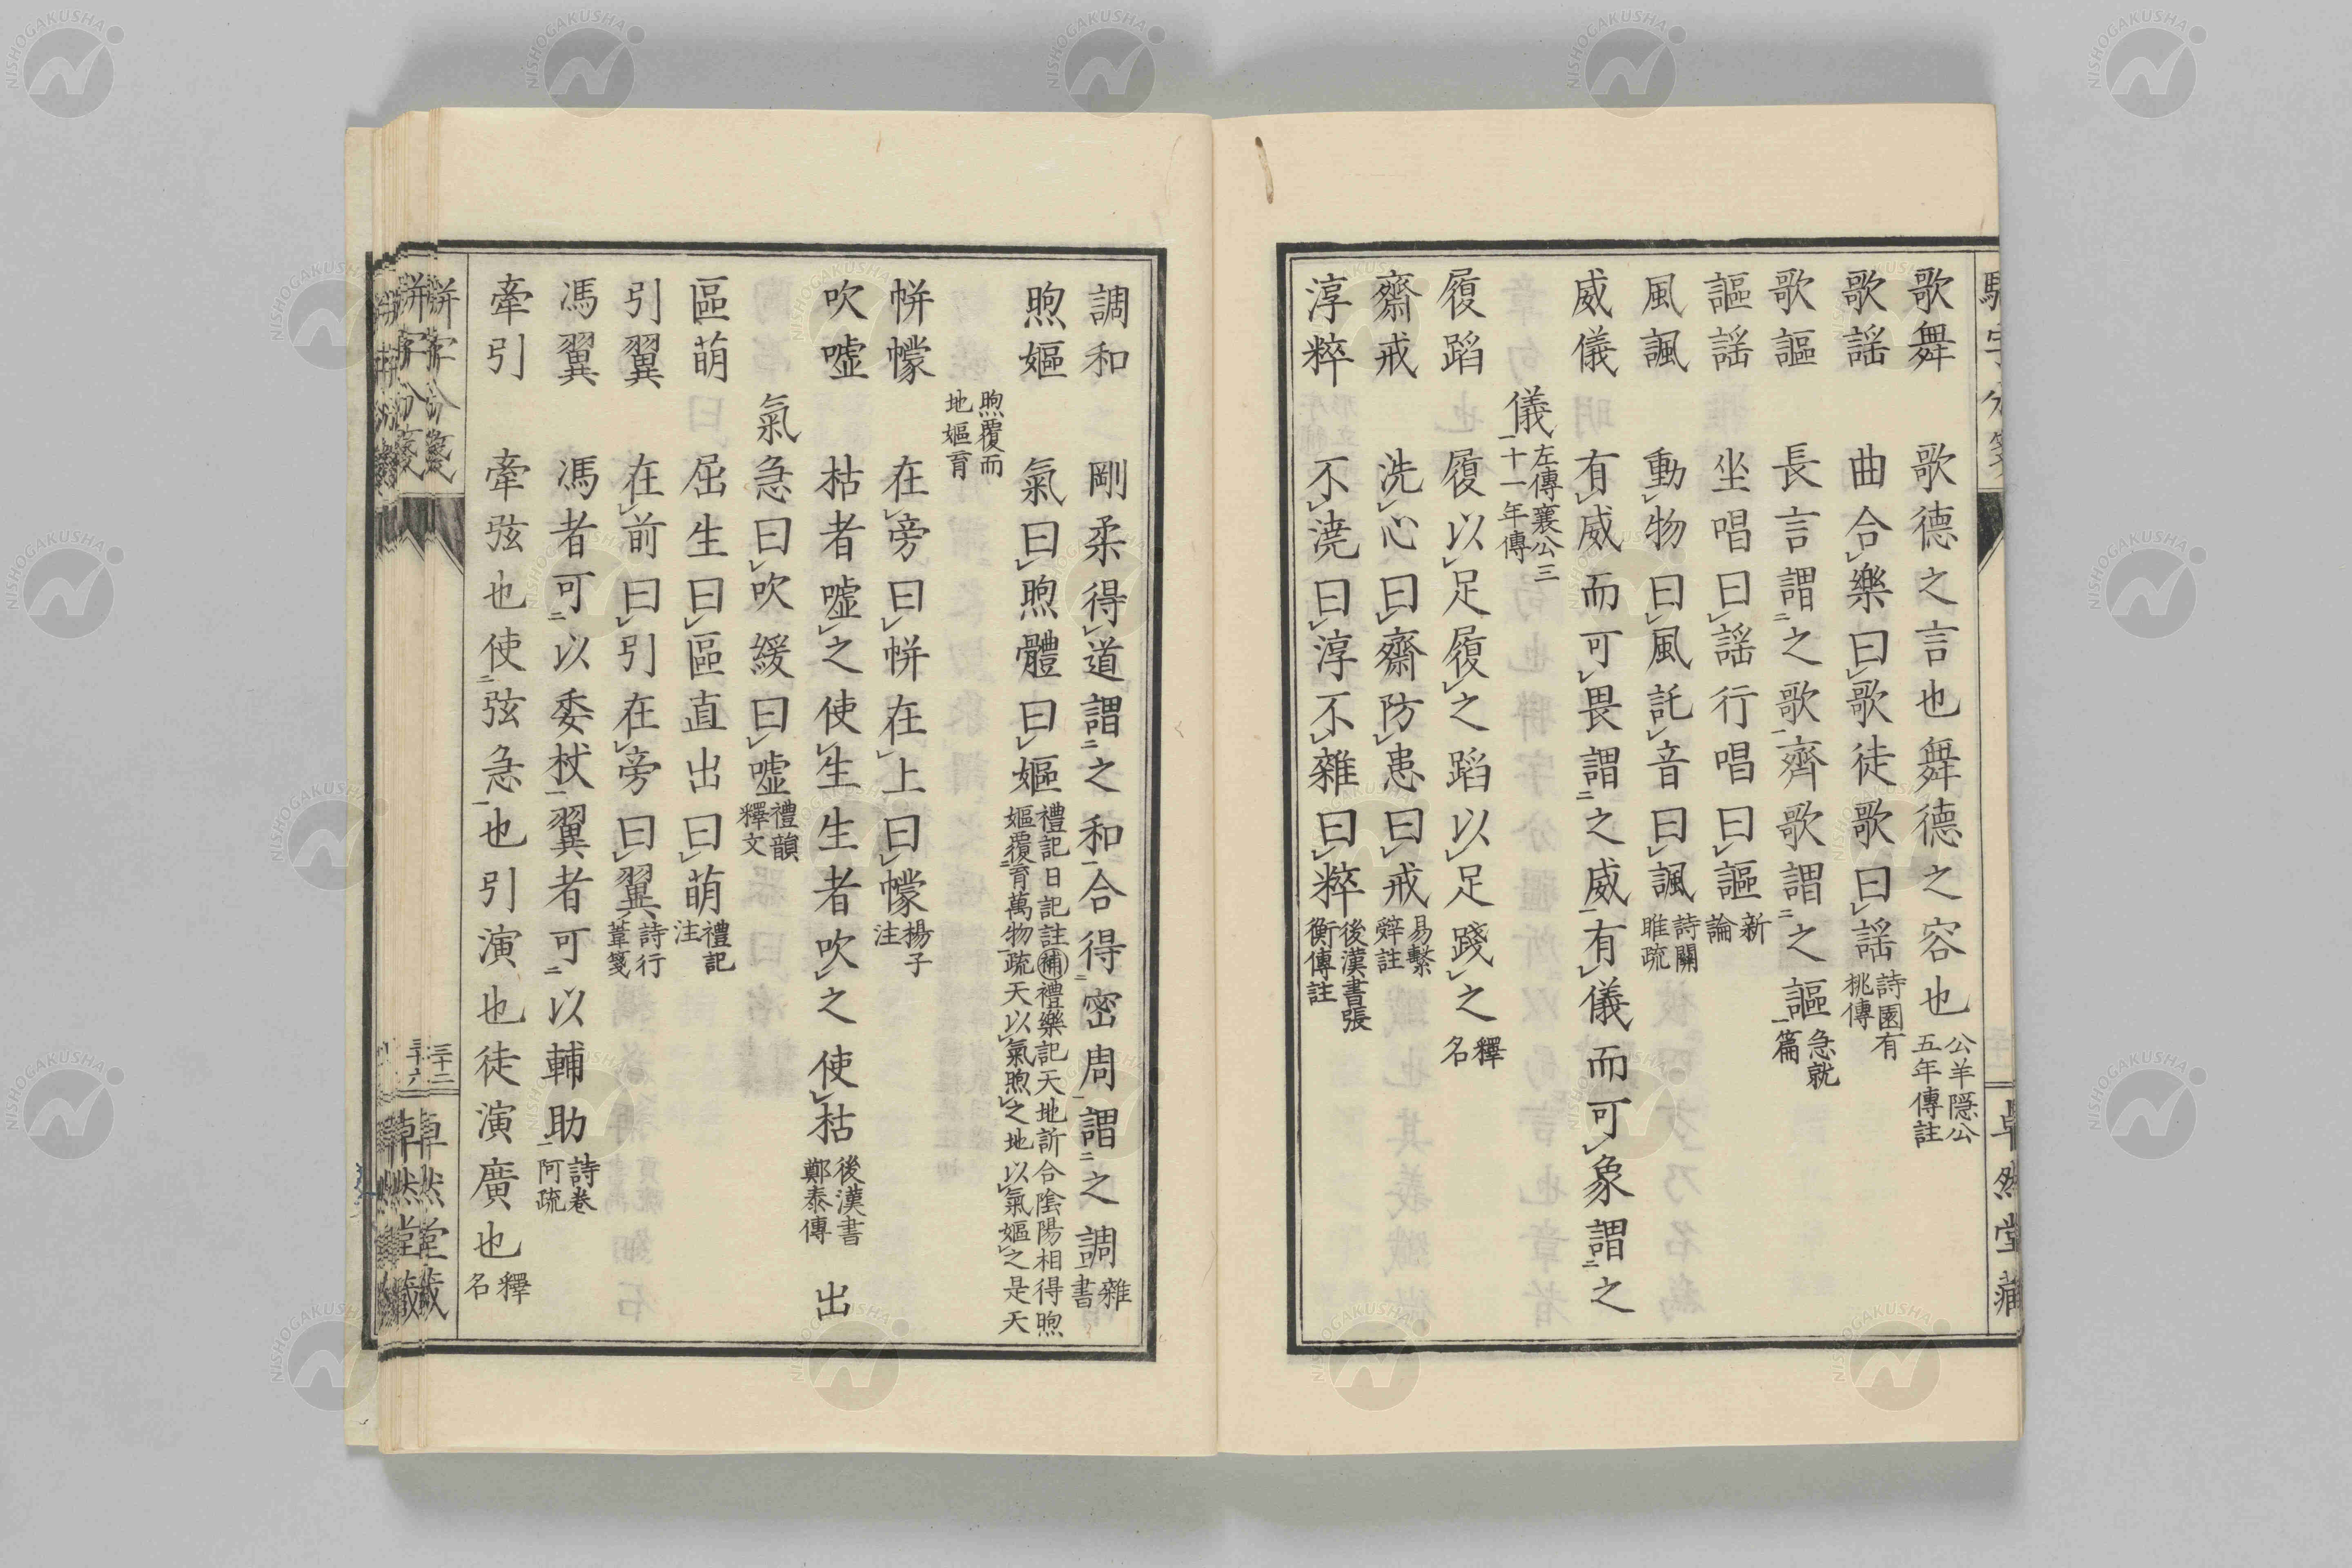 歌舞 歌德之言也舞德之容也 公羊隱公五年傳註
歌謡 曲合樂曰歌徒歌曰謡 詩園有桃傳
歌謳 長言謂之歌齊歌謂之謳 急就篇
謳謡 坐唱曰謡行唱曰謳 新論
風諷 動物曰風託音曰諷 詩關雎疏
威儀 有威而可畏謂之威有儀而可象謂之
儀 左傳襄公三十一年傳
履蹈 履以足履之蹈以足踐之 釋名
齋戒 洗心曰齋防患曰戒 易繫辤註
淳粹 不澆曰淳不雜曰粹 後漢書張衡傳註
卓然堂藏
調和 剛柔得道謂之和合得密周謂之調 雜書
煦嫗 氣曰煦體曰嫗 禮記日記註補禮樂記天地訢合陰陽相得煦嫗覆育萬物疏天以氣煦之地以氣嫗之是天
煦覆而地嫗育
帡幪 在旁曰帡在上曰幪 揚子注
吹噓 枯者噓之使生生者吹之使枯 後漢書鄭泰傳 出
氣急曰吹緩曰噓 禮韻釋文
區萌 屈生曰區直出曰萌 禮記注
引翼 在前曰引在旁曰翼 詩行葦箋
馮翼 馮者可以委杖翼者可以輔助 詩卷阿疏
牽引 牽弦也使弦急也引演也徒演廣也 釋名
騈字分箋
三十二
卓然堂藏
NISHOGAKUSHA